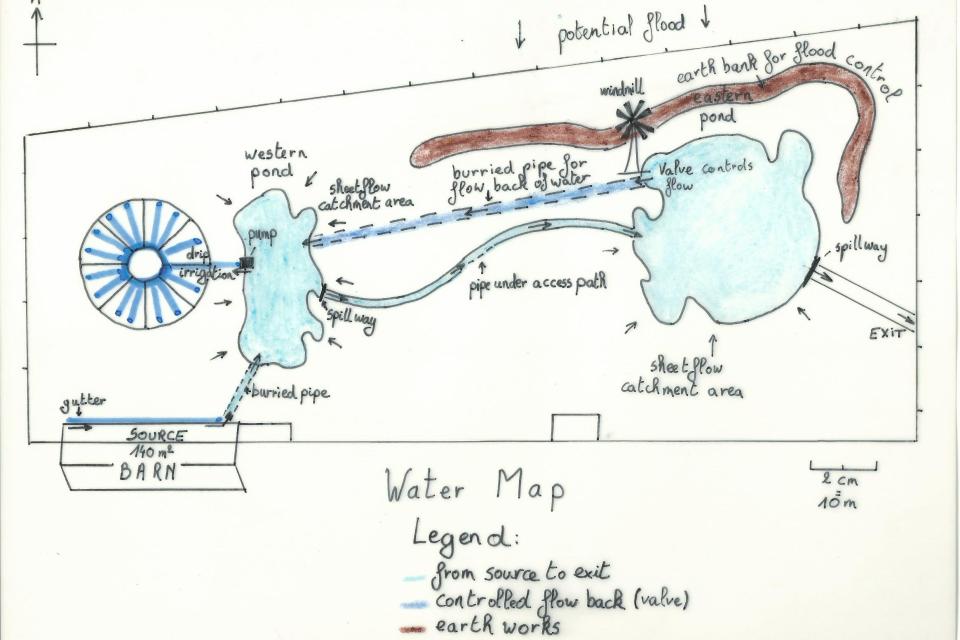 N
potential flood
earth bank for flood control
windmill
eastern
pond
western
pond
burried pipe for
flow back of water
Valve controls
flow
sheetflow
catchment area
pump
drip
irrigation
spillway
pipe under access path
spillway
EXIT
burried pipe
sheetflow
catchment area
gutter
SOURCE
140 m²
BARN
Water Map
2 cm
=
10 m
Legend:
from source to exit
controlled flow back (valve)
earth works